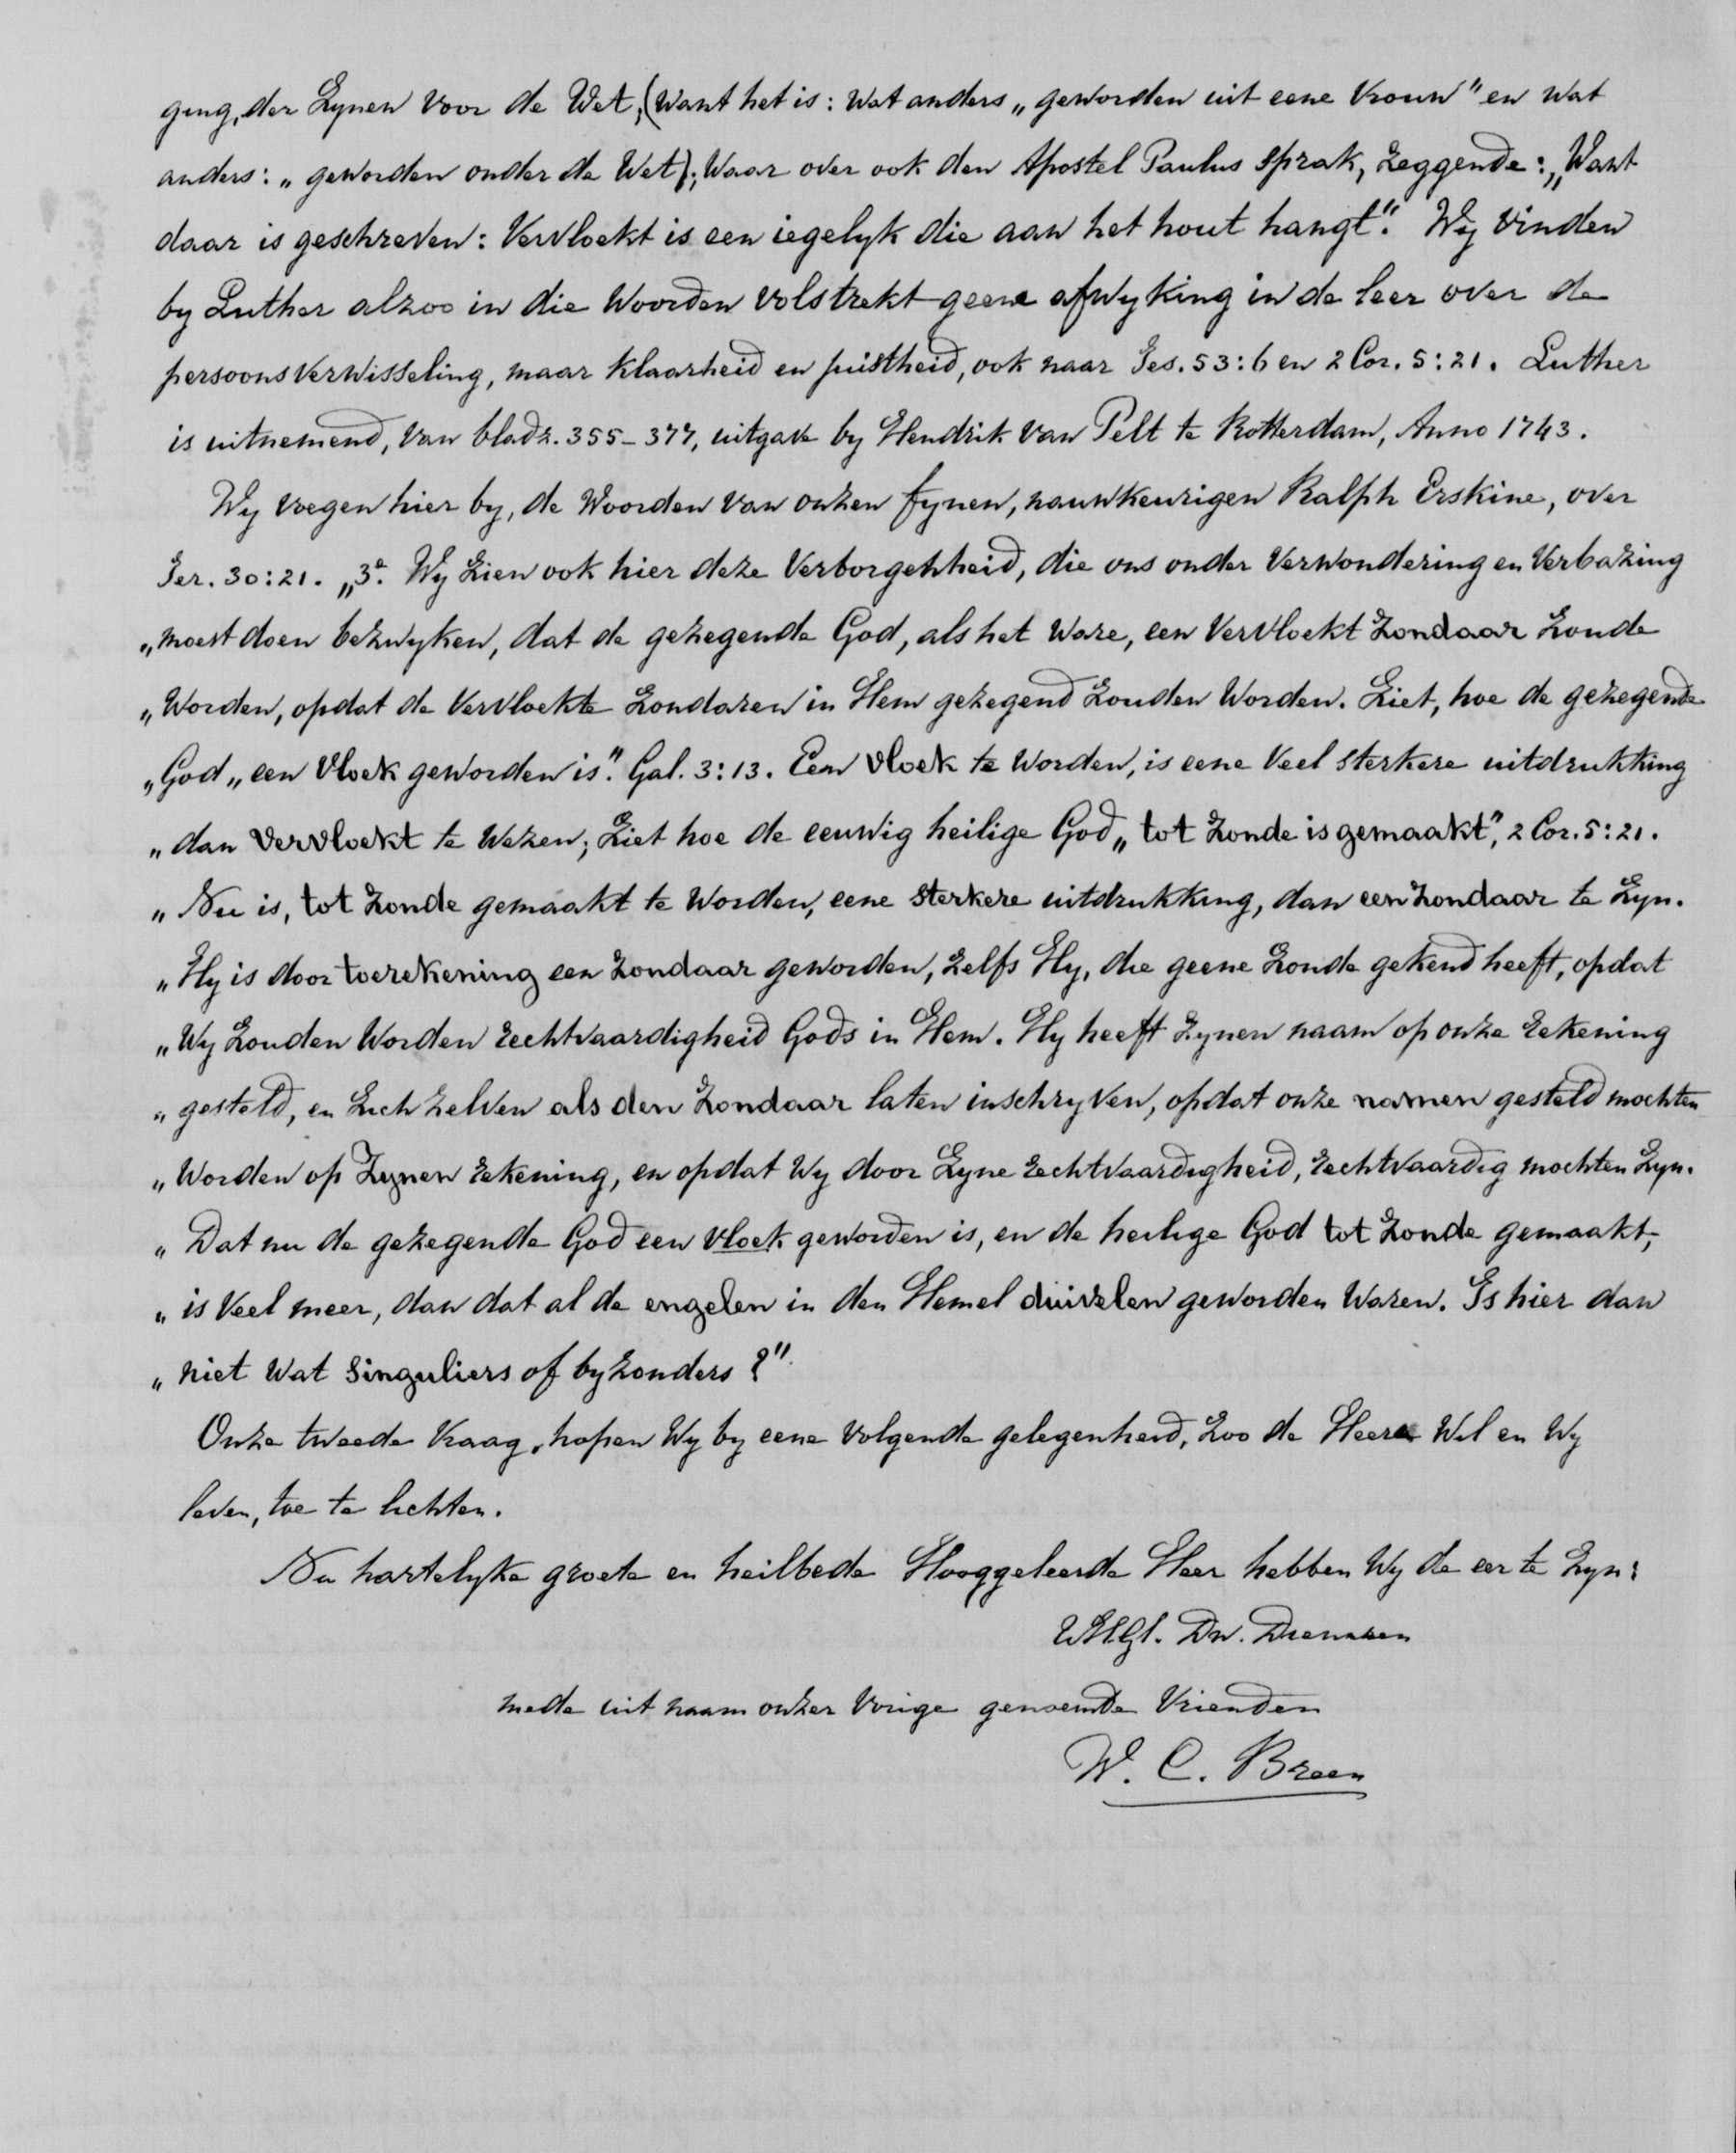 ging, der Zynen voor de Wet, (want het is: wat anders „geworden uit eene Vrouw" en wat
anders: „geworden onder de Wet); waar over ook den Apostel Paulus sprak, zeggende: „Want
daar is geschreven: Vervloekt is een iegelyk die aan het hout hangt". Wy vinden
by Luther alzoo in die woorden volstrekt geene afwyking in de leer over de
persoonsverwisseling, maar klaarheid en juistheid, ook naar Jes. 53:6 en 2 Cor. 5:21. Luther
is uitnemend, van bladz. 355-377, uitgave by Hendrik van Pelt te Rotterdam, Anno 1743.
Wy voegen hier by, de woorden van onzen fynen, nauwkeurigen Ralph Erskine, over
Jer. 30:21. „3e. Wy zien ook hier deze verborgenheid, die ons onder verwondering en verbazing
„moest doen bezwyken, dat de gezegende God, als het ware, een vervloekt zondaar zoude
„worden, opdat de vervloekte zondaren in Hem gezegend zouden worden. Ziet, hoe de gezegende
„God „een vloek geworden is". Gal. 3:13. Een vloek te worden, is eene veel sterkere uitdrukking
„dan vervloekt te wezen; Ziet hoe de eeuwig heilige God „tot zonde is gemaakt", 2 Cor. 5:21.
„Nu is, tot zonde gemaakt te worden, eene sterkere uitdrukking, dan een zondaar te zyn.
„Hy is door toerekening een zondaar geworden, zelfs Hy, die geene zonde gekend heeft, opdat
„Wy zouden worden rechtvaardigheid Gods in Hem. Hy heeft Zynen naam op onze rekening
„gesteld, en Zich zelven als den zondaar laten inschryven, opdat onze namen gesteld mochten
„worden op Zynen rekening, en opdat wy door Zyne rechtvaardigheid, rechtvaardig mochten zyn.
„Dat nu de gezegende God een vloek geworden is, en de heilige God tot zonde gemaakt,
„is veel meer, dan dat al de engelen in den Hemel duivelen geworden waren. Is hier dan
„niet wat singuliers of byzonders?"
Onze tweede vraag, hopen wy by eene volgende gelegenheid, zoo de Heere wil en wy
leven, toe te lichten.
Na hartelyke groete en heilbede Hooggeleerde Heer hebben wy de eer te zyn:
UHGl. Dw. Dienaren
mede uit naam onzer vorige genoemde Vrienden
W. C. Breen